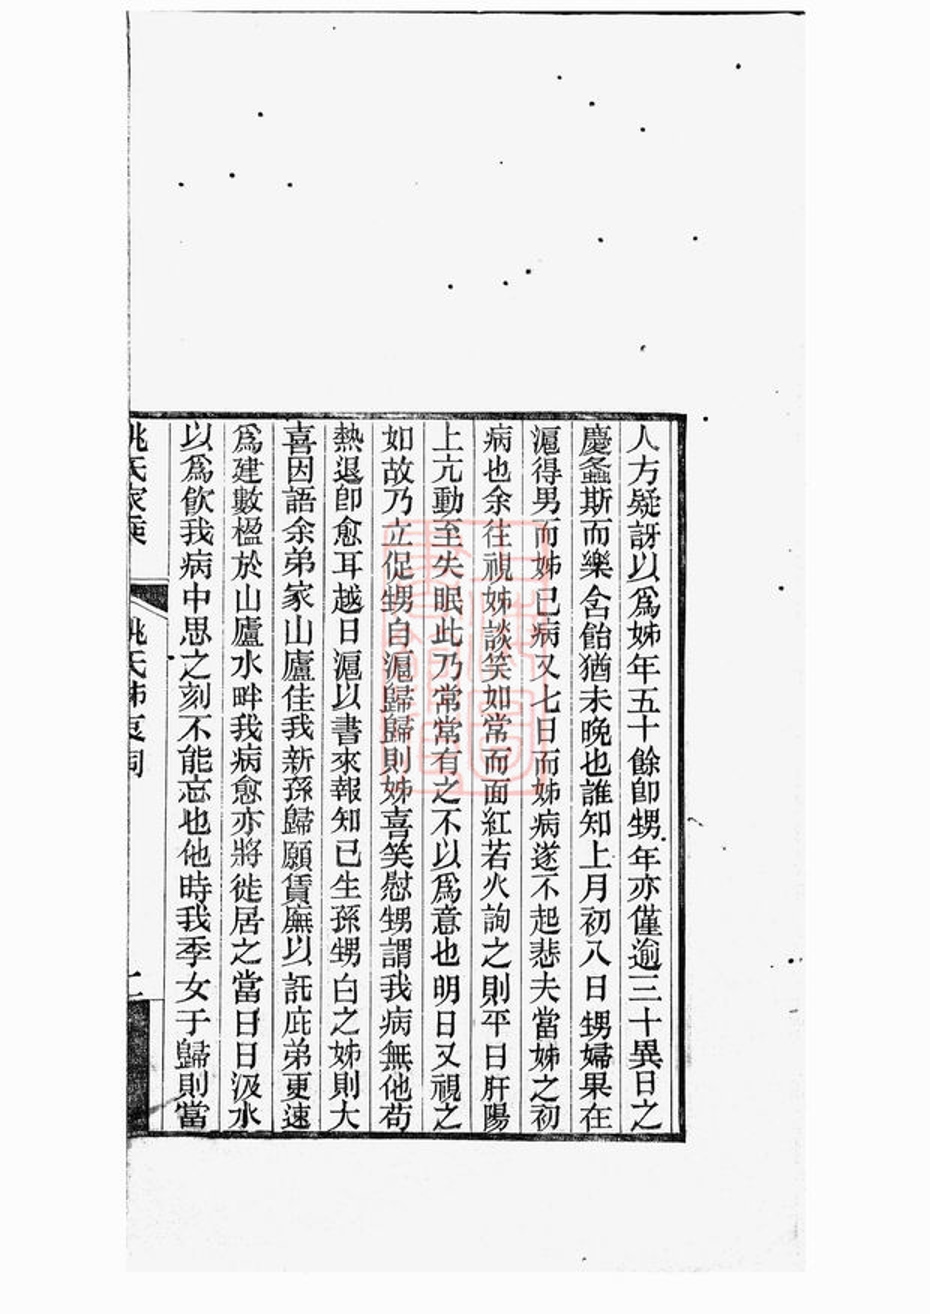 人方疑訝以爲姊年五十餘卽甥年亦僅逾三十異日之
慶螽斯而樂含飴猶未晚也誰知上月初八日甥婦果在
滬得男而姊已病又七日而姊病遂不起悲夫當姊之初
病也余往視姊談笑如常而面紅若火詢之則平日肝陽
上亢動至失眠此乃常常有之不以爲意也明日又視之
如故乃立促甥自滬歸歸則姊喜笑慰甥謂我病無他苟
熱退卽愈耳越日滬以書來報知已生孫甥白之姊則大
喜因語余弟家山廬佳我新孫歸願賃廡以託庇弟更速
爲建數楹於山廬水畔我病愈亦將徙居之當日日汲水
以爲飮我病中思之刻不能忘也他時我季女于歸則當
姚氏家乘
姚氏姊哀詞